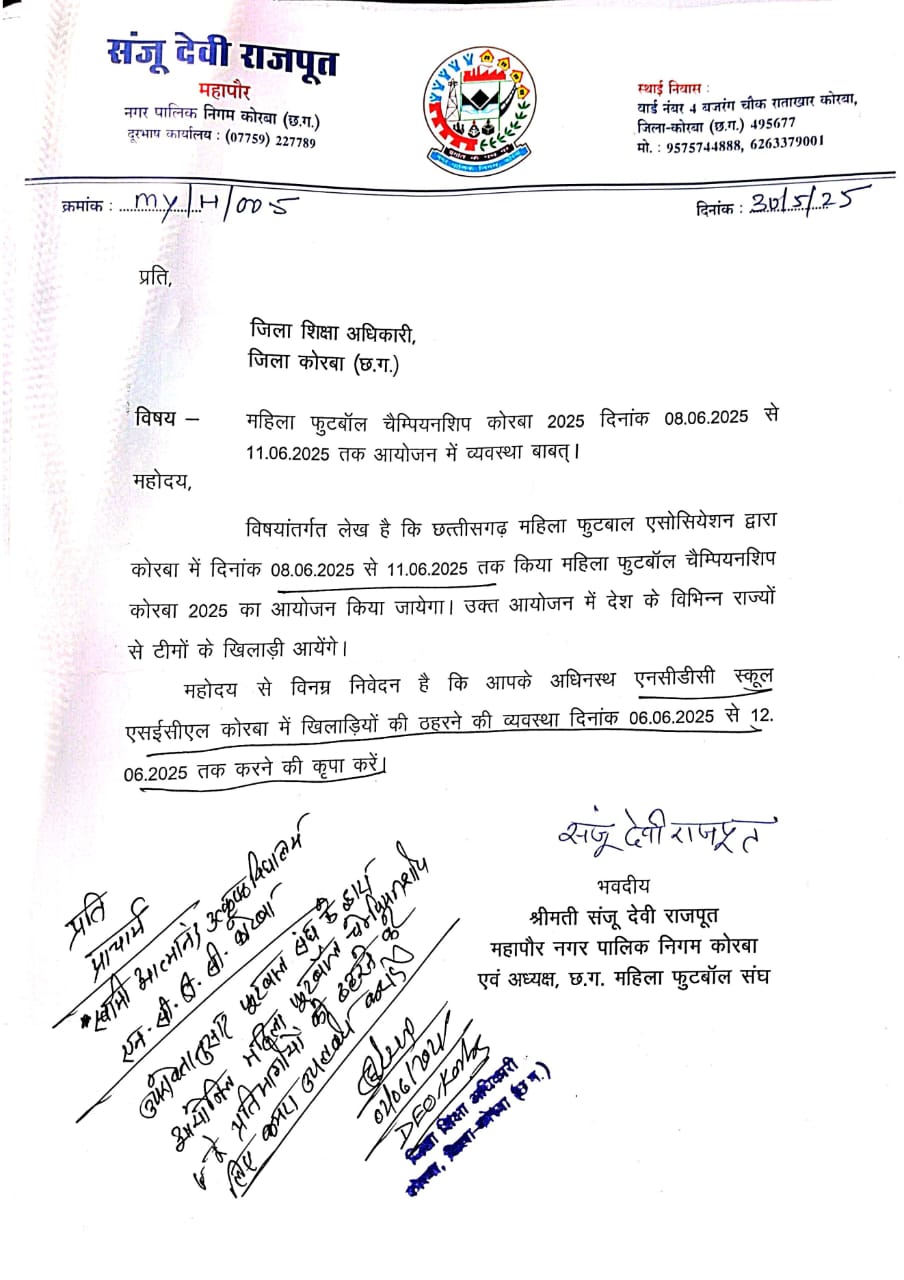 संजू देवी राजपूत
महापौर
नगर पालिक निगम कोरबा (छ.ग.)
दूरभाष कार्यालय : (07759) 227789
स्थाई निवास :
वार्ड नंबर 4 बजरंग चौक राताखार कोरबा,
जिला-कोरबा (छ.ग.) 495677
मो. : 9575744888, 6263379001
क्रमांक : my/H/005
दिनांक : 30/5/25
प्रति,
जिला शिक्षा अधिकारी,
जिला कोरबा (छ.ग.)
विषय – महिला फुटबॉल चैम्पियनशिप कोरबा 2025 दिनांक 08.06.2025 से
11.06.2025 तक आयोजन में व्यवस्था बाबत्।
महोदय,
विषयांतर्गत लेख है कि छत्तीसगढ़ महिला फुटबाल एसोसियेशन द्वारा
कोरबा में दिनांक 08.06.2025 से 11.06.2025 तक किया महिला फुटबॉल चैम्पियनशिप
कोरबा 2025 का आयोजन किया जायेगा। उक्त आयोजन में देश के विभिन्न राज्यों
से टीमों के खिलाड़ी आयेंगे।
महोदय से विनम्र निवेदन है कि आपके अधिनस्थ एनसीडीसी स्कूल
एसईसीएल कोरबा में खिलाड़ियों की ठहरने की व्यवस्था दिनांक 06.06.2025 से 12.
06.2025 तक करने की कृपा करें।
संजू देवी राजपूत
भवदीय
श्रीमती संजू देवी राजपूत
महापौर नगर पालिक निगम कोरबा
एवं अध्यक्ष, छ.ग. महिला फुटबॉल संघ
प्रति
प्राचार्य
स्वामी आत्मानंद उत्कृष्ट विद्यालय
एन. सी. डी. सी. कोरबा
उपरोक्तानुसार फुटबाल संघ के द्वारा
आयोजित महिला फुटबॉल चैम्पियनशीप
के प्रतिभागीयों को ठहरने के
लिए कमरा उपलब्ध करावें
02/06/2025
DEO Korba
जिला शिक्षा अधिकारी
कोरबा, जिला-कोरबा (छ.ग.)